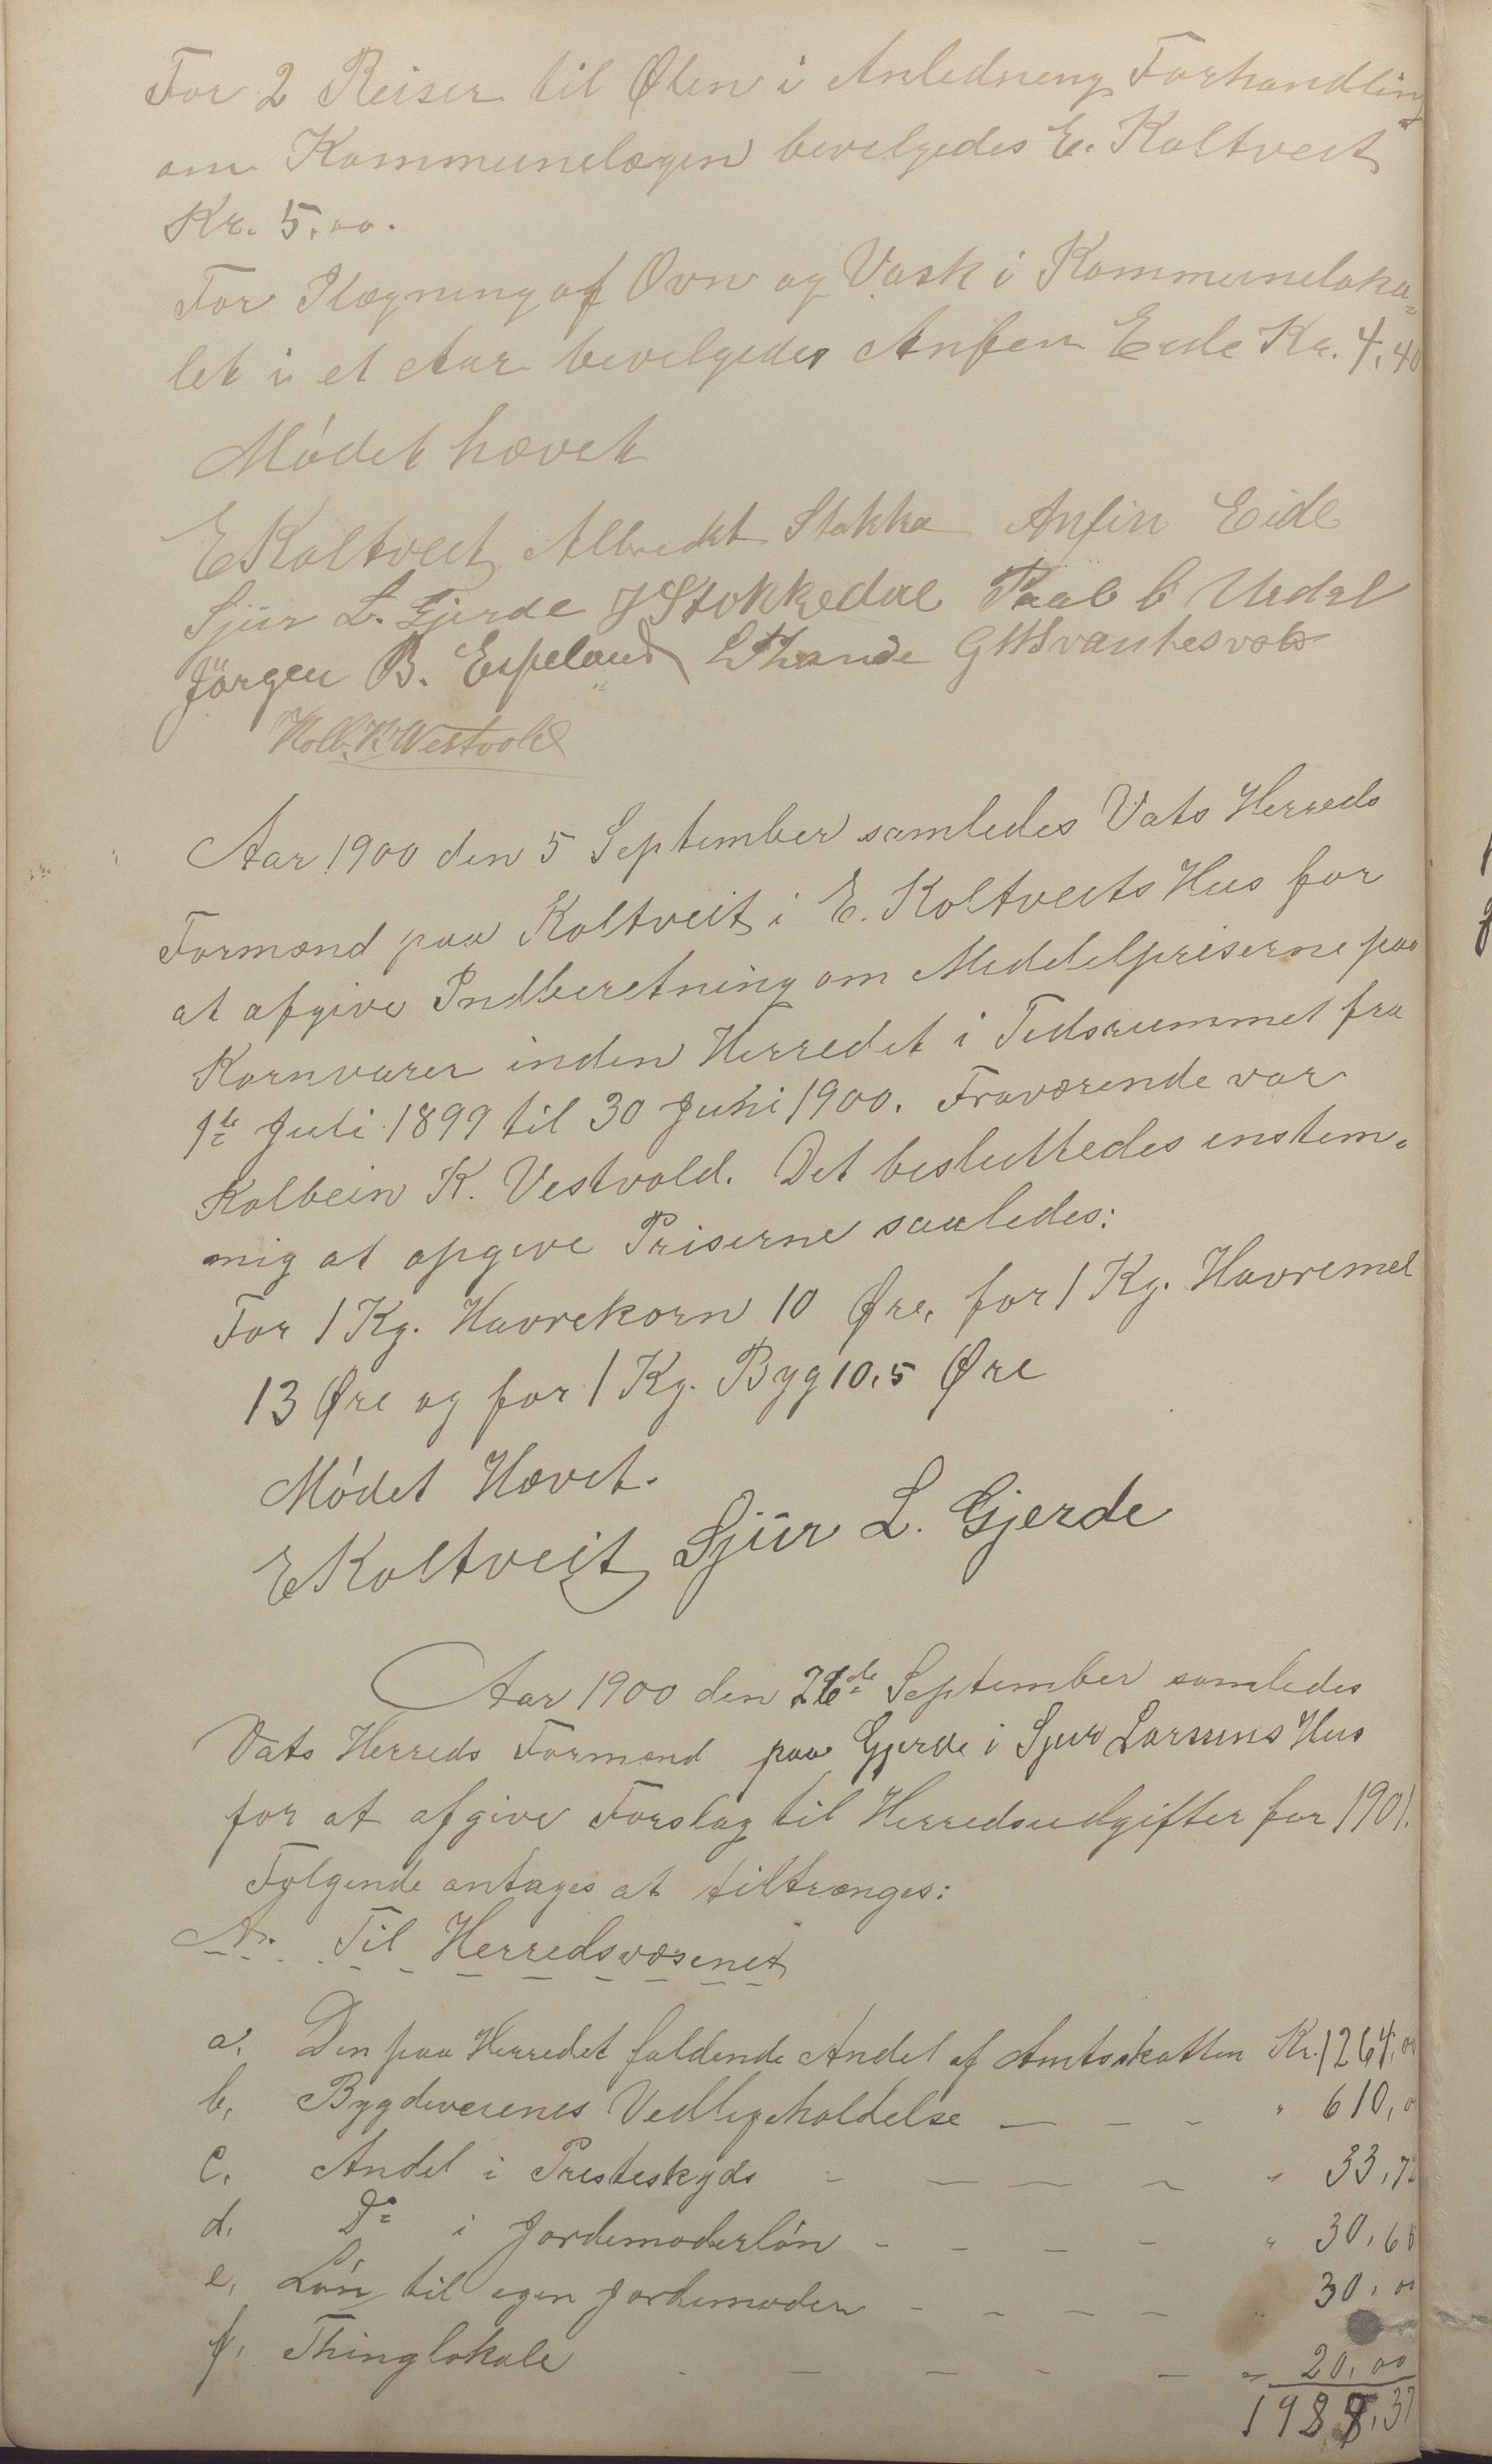 For 2 Reiser til Ølen i Anledning Forhandling
om Kommunelægen bevilgedes E. Koltveit
Kr. 5,00.
For Ilægning af Ovn og Vask i Kommuneloka-
let i et Aar bevilgedes Anfin Eide Kr. 4,40
Mödet hævet
E Koltveit Albrecht Stakka Anfin Eide
Sjur L. Gjerde J Stokkedal Paal C Urdal
Jörgen B. Espeland G M Svantesvold
Kolb. K Westvold
Aar 1900 den 5 September samledes Vats Herreds
Formænd paa Koltveit i E. Koltveits Hus for
at afgive Indberetning om Middelpriserne paa
Kornvarer inden Herredet i Tidsrummet fra
1ste Juli 1899 til 30 Juni 1900. Fraværende var
Kolbein K. Vestvold. Det besluttedes enstem-
mig at opgive Priserne saaledes:
For 1 Kg. Havrekorn 10 Øre, for 1 Kg. Havremel
13 Øre og for 1 Kg. Byg 10,5 Øre
Mödet Hævet.
E Koltveit Sjur L. Gjerde
Aar 1900 den 26de September samledes
Vats Herreds Formænd paa Gjerde i Sjur Larsens Hus
for at afgive Forslag til Herredsudgifter for 1901.
Følgende antages at tiltrænges:
A. Til Herredsvæsenet
a. Den paa Herredet faldende Andel af Amtsskatten Kr. 1264,00
b. Bygdeveienes Vedligeholdelse — - - " 610,0
c. Andel i Presteskyds - — — - " 33,72
d. Do i Jordemoderlön - - — - " 30,65
e. Lön til egen Jordemoder - - — - " 30,00
f. Thinglokale - — — - — " 20,00
1988,37